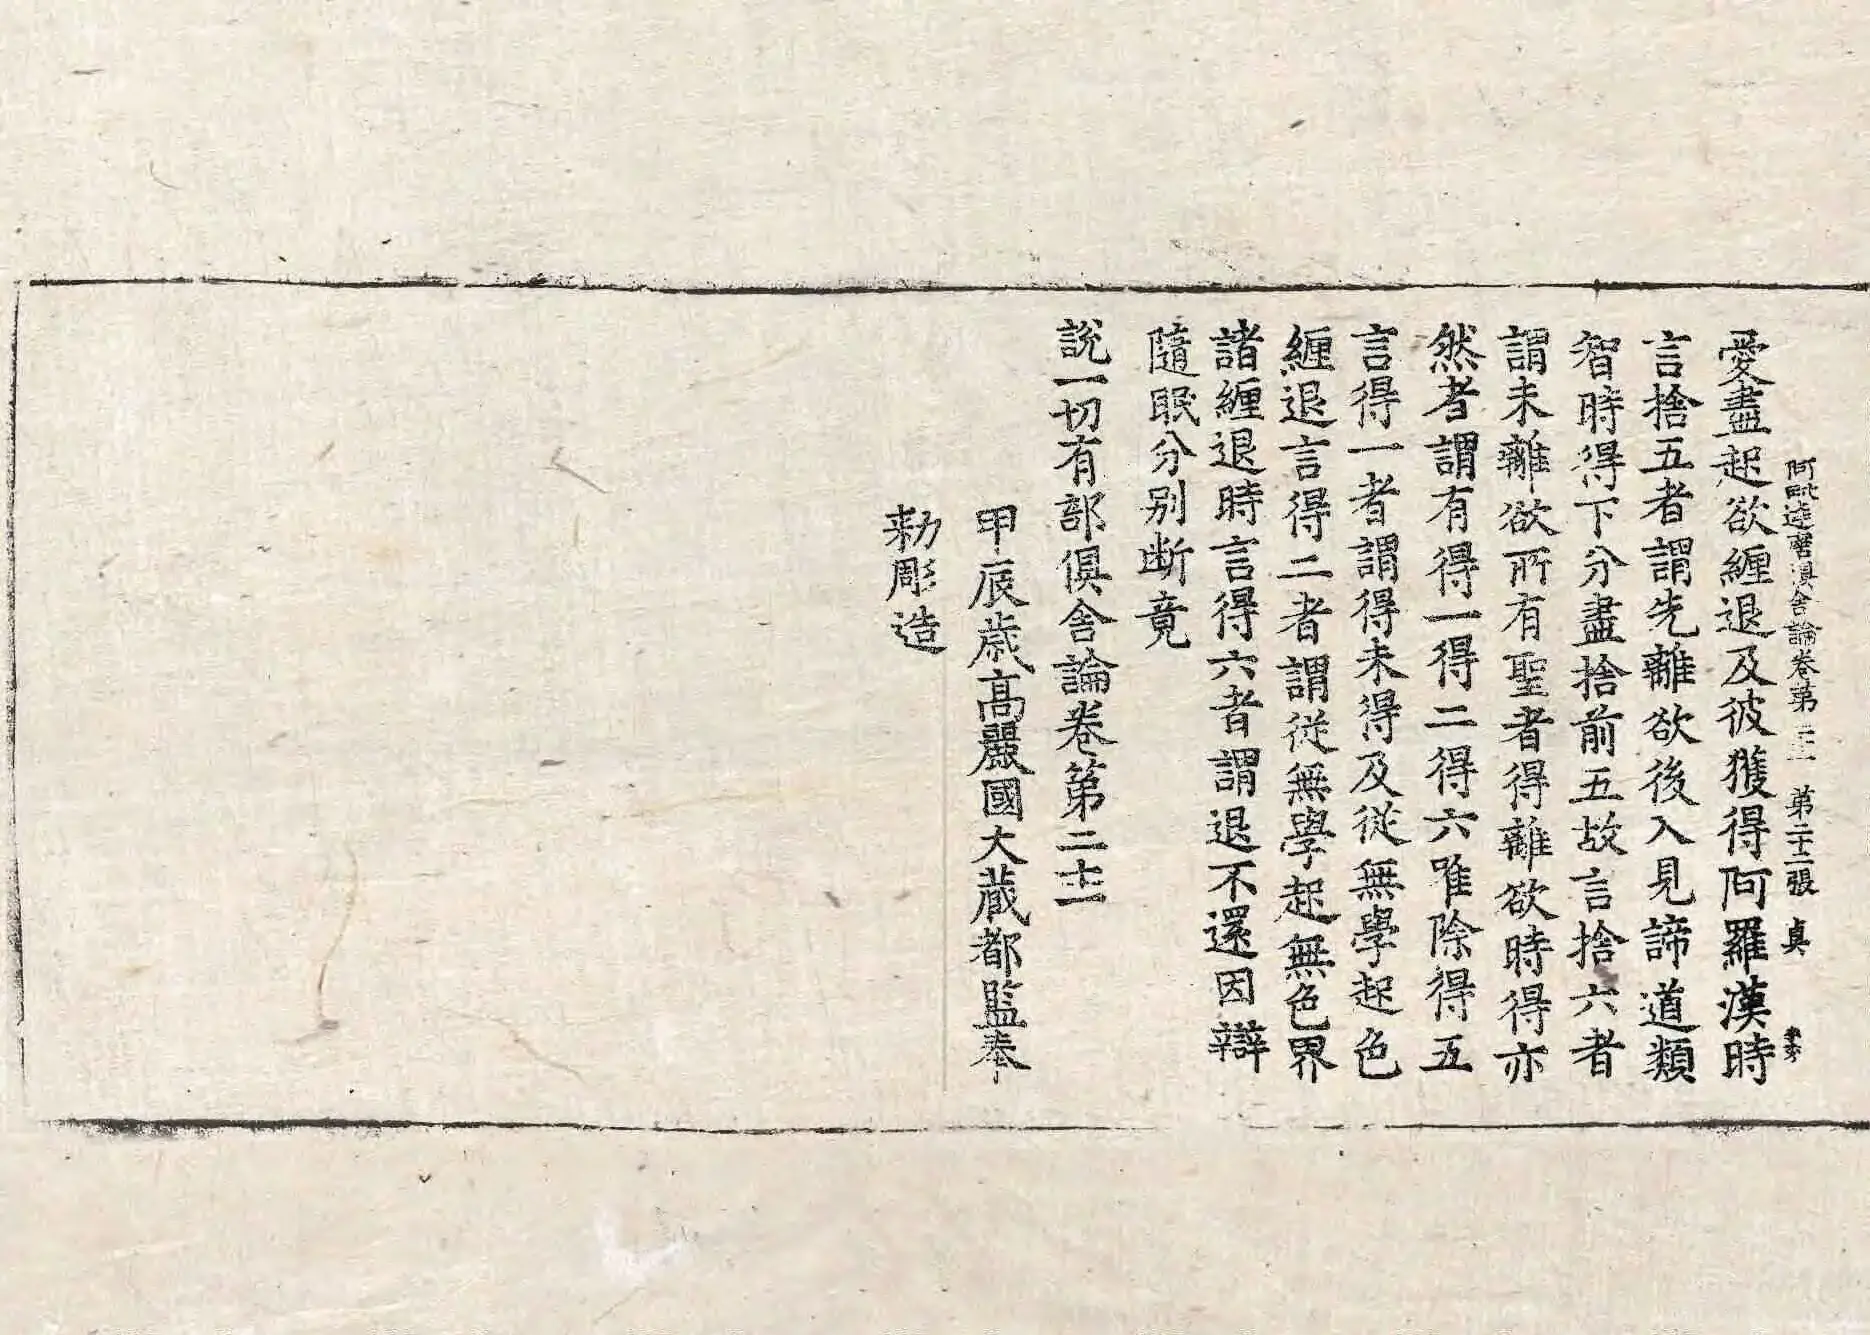 阿毗達磨俱舍論卷第二十一 第二十二張 真
愛盡起欲纏退及彼獲得阿羅漢時
言捨五者謂先離欲後入見諦道類
智時得下分盡捨前五故言捨六者
謂未離欲所有聖者得離欲時得亦
然者謂有得一得二得六唯除得五
言得一者謂得未得及從無學起色
纏退言得二者謂從無學起無色界
諸纏退時言得六者謂退不還因辯
隨眠分別斷竟
說一切有部俱舍論卷第二十一
甲辰歲高麗國大藏都監奉
勑彫造